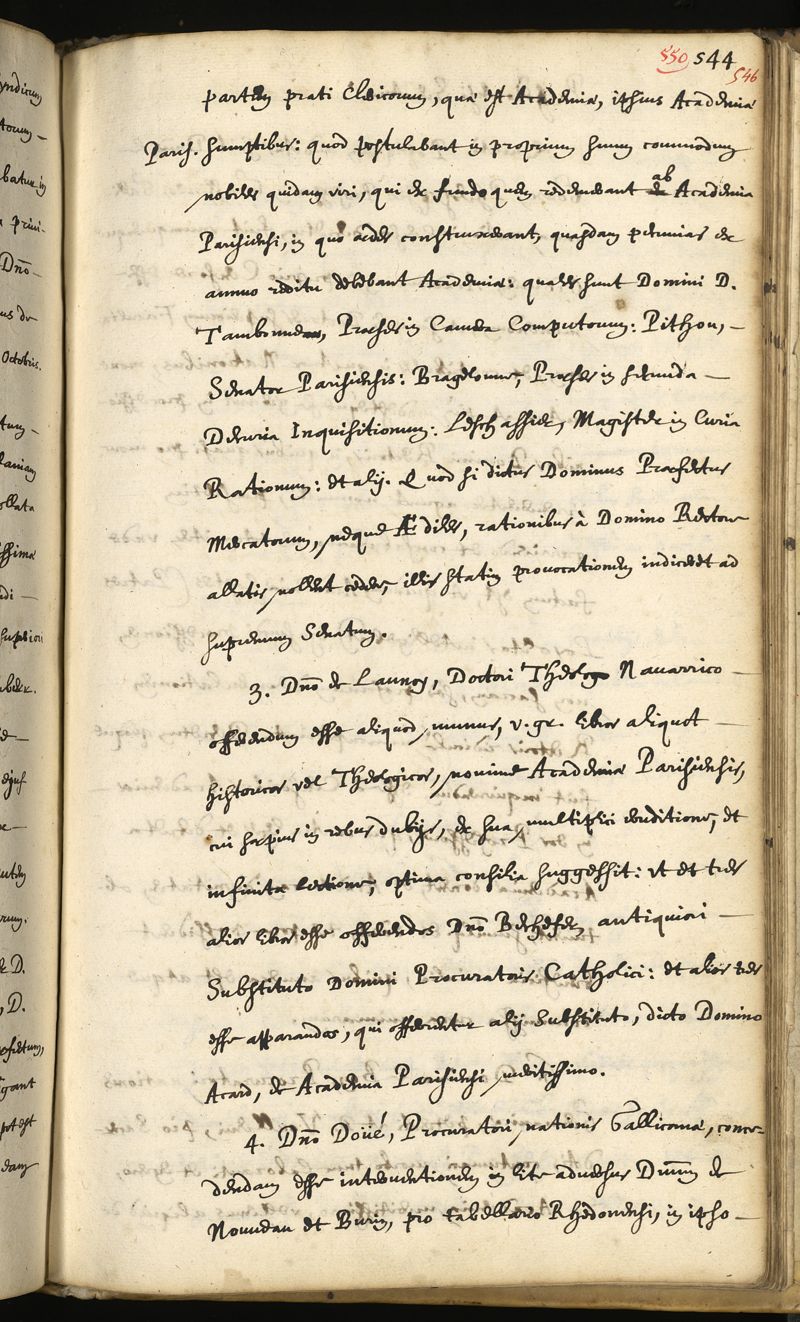 550 544
546
partem prati Clericorum, quæ est Academiæ, ipsius Academiæ
Paris. sumptibus: quod postulabant in proprium suum commodum
nobiles quidam viri, qui ex fundo quem redemerant ab Academia
Parisiensi, in quo ædes construxerant, quasdam pecunias ex
annuo reditu debebant Academiæ: quales sunt Domini D.
Tambonneau, Præses in Camera Computorum: Pithou,
Senator Parisiensis: Bragelonne, Præses in secunda
Decuria Inquisitionum: Leschassier, Magister in Curia
Rationum: et alij. Quod si dictus Dominus Præfectus
Mercatorum, neque Ædiles, rationibus à Domino Rectore
allatis nollent cedere, illis statim provocationem indiceret ad
supremum Senatum.
3. Dno de Launoy, Doctori Theologo Navarrico
offerendum esse aliquod munus, v. gr. libros aliquot
historicos vel Theologicos, nomine Academiæ Parisiensis,
cui sæpius in rebus dubijs, ex sua multiplici eruditione, et
infinita lectione, optima consilia suggessit: ut et tres
alios libros esse offerendos Dno Bechefer, antiquiori
Substituto Domini Procuratoris Catholici: et alios tres
esse apparandos, qui offerrentur alij Substituto, dicto Domino
Acard, de Academia Parisiensi meritissimo.
4. Dno Doüé, Procuratori nationis Gallicanæ, conce-
dendam esse interventionem in lite adversus Dnum de
Nouveau et Burin, pro tabellario Rhedonensi, in ipso
yndicum
torum
batur in
Dno
us de
Octobris.
tum
ollata
ssima
ejus
utem
rum.
& D.
, D.
gant
potest